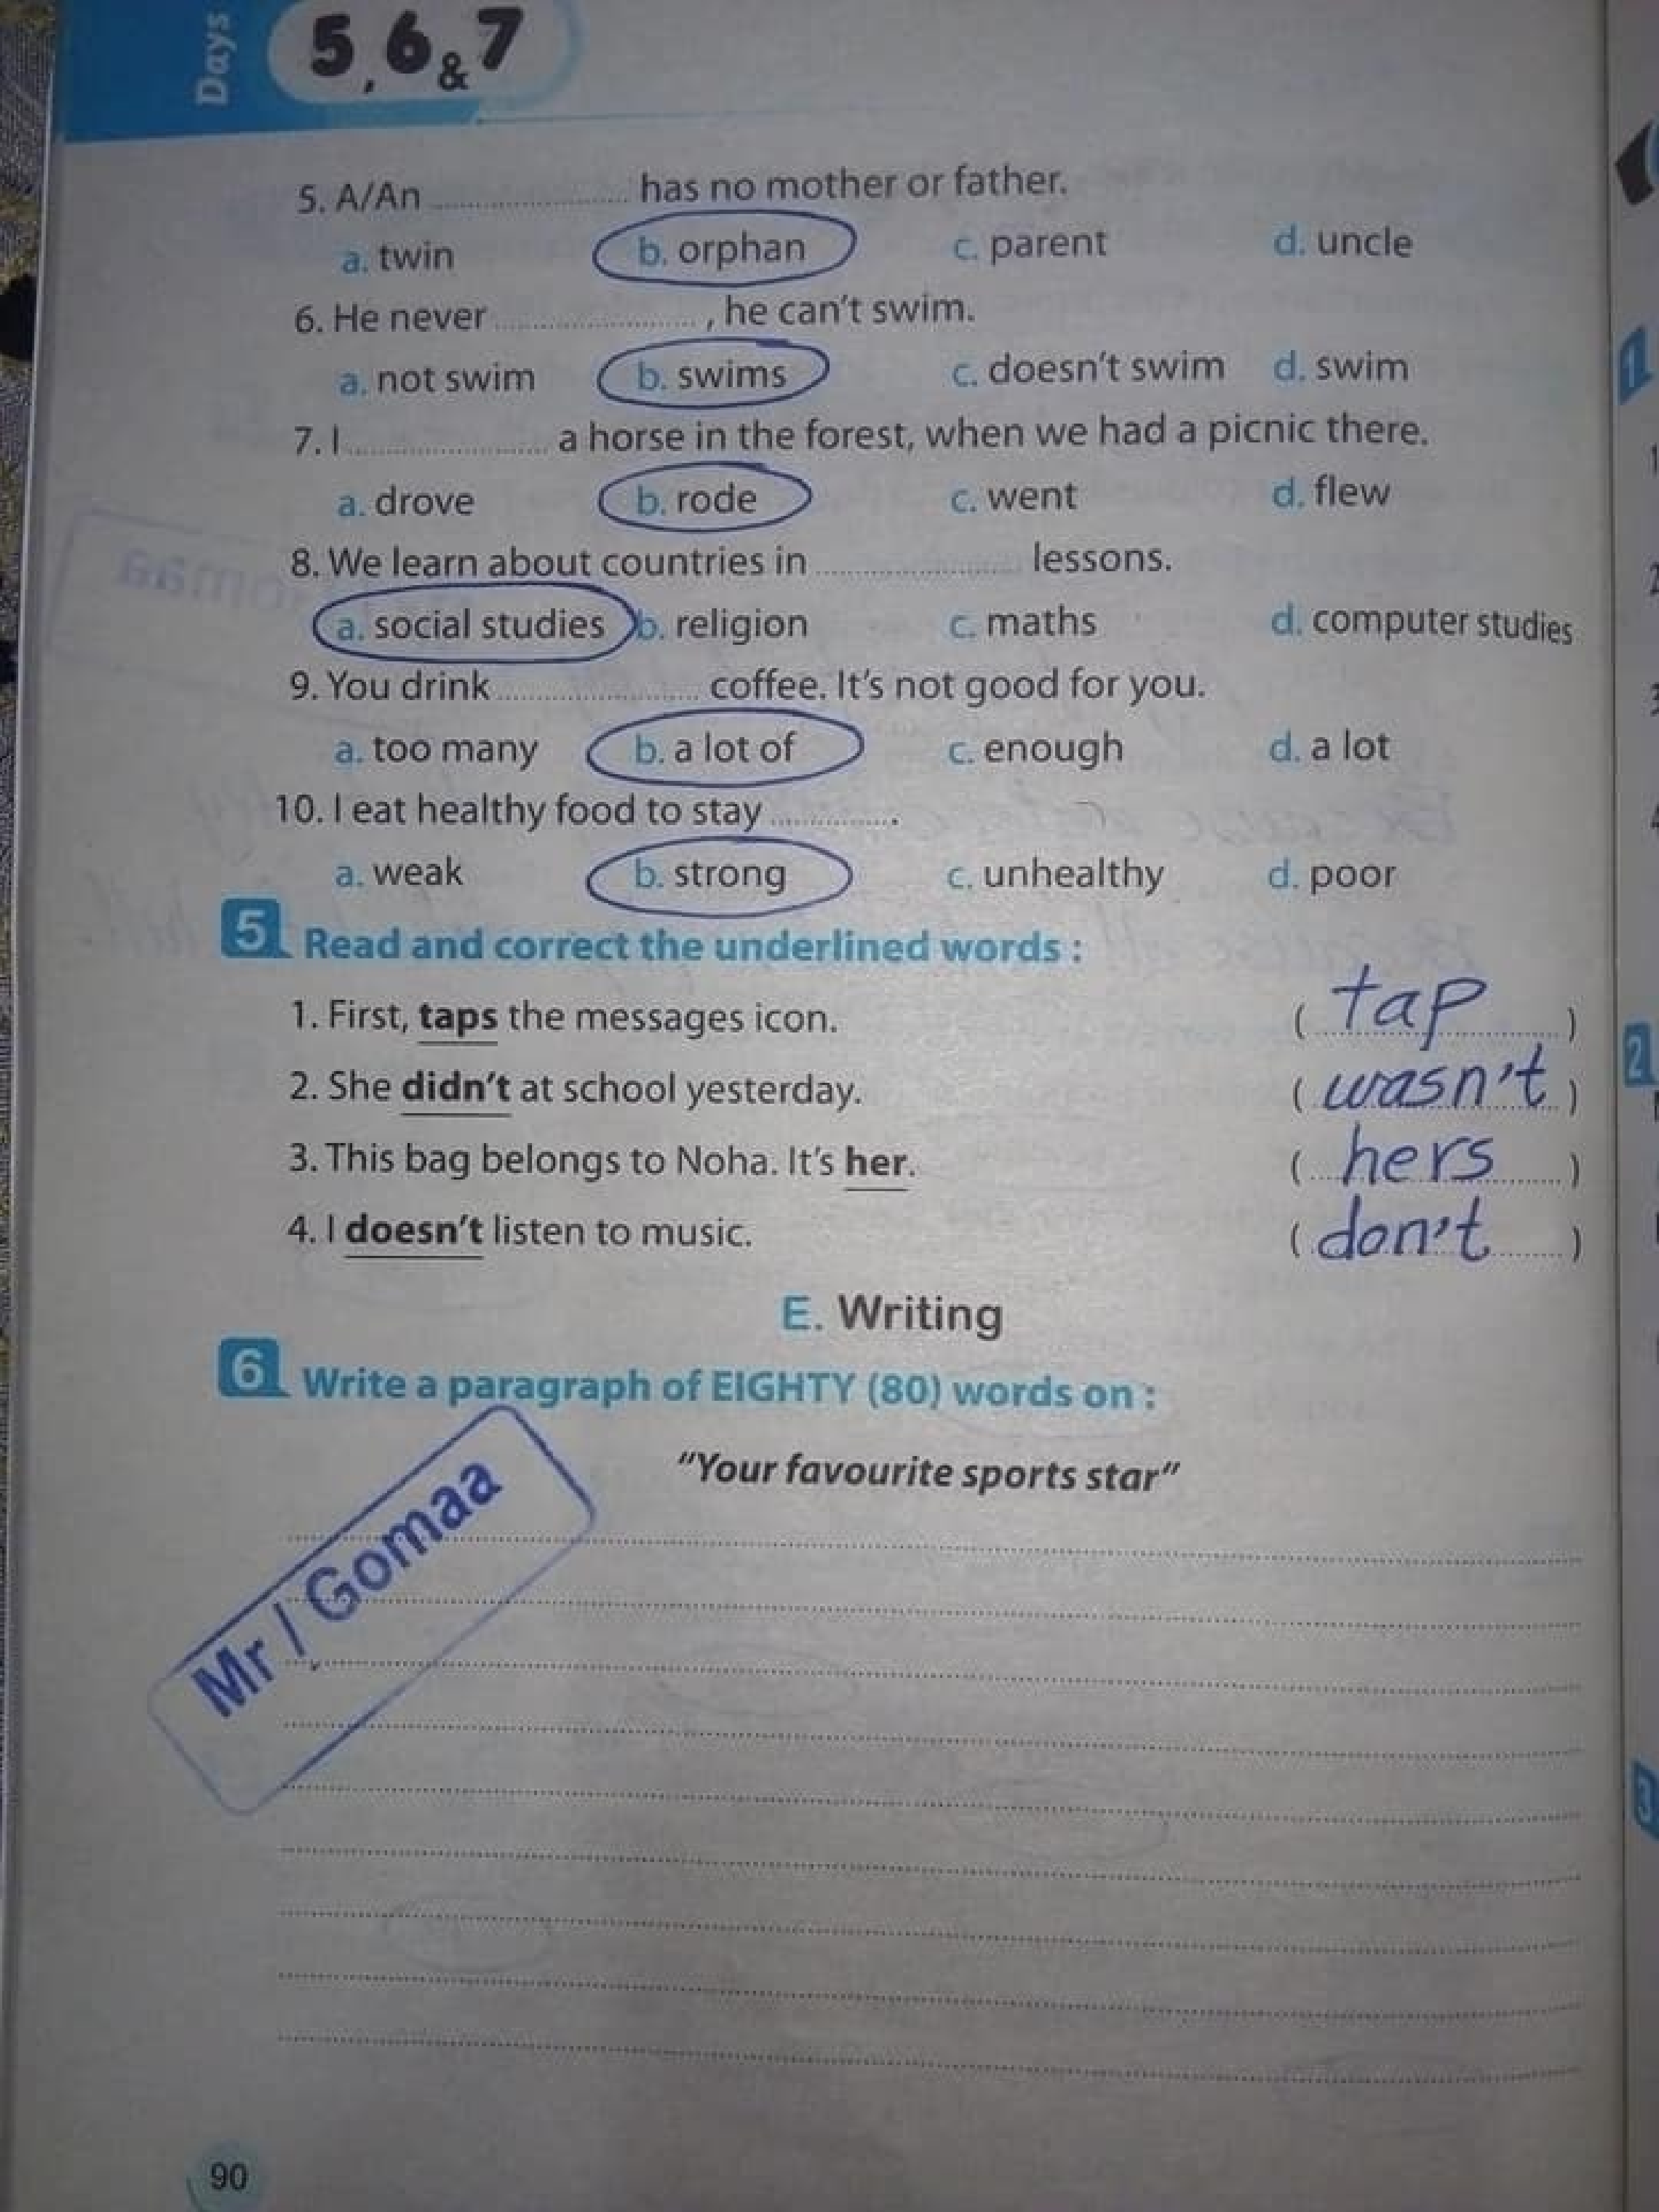 Days 5, 6 & 7
5. A/An .................... has no mother or father.
a. twin b. orphan c. parent d. uncle
6. He never ...................., he can't swim.
a. not swim b. swims c. doesn't swim d. swim
7. I .................... a horse in the forest, when we had a picnic there.
a. drove b. rode c. went d. flew
8. We learn about countries in .................... lessons.
a. social studies b. religion c. maths d. computer studies
9. You drink .................... coffee. It's not good for you.
a. too many b. a lot of c. enough d. a lot
10. I eat healthy food to stay .............
a. weak b. strong c. unhealthy d. poor
5 Read and correct the underlined words :
1. First, taps the messages icon. ( tap )
2. She didn't at school yesterday. ( wasn't )
3. This bag belongs to Noha. It's her. ( hers )
4. I doesn't listen to music. ( don't )
E. Writing
6 Write a paragraph of EIGHTY (80) words on :
"Your favourite sports star"
Mr / Gomaa
90